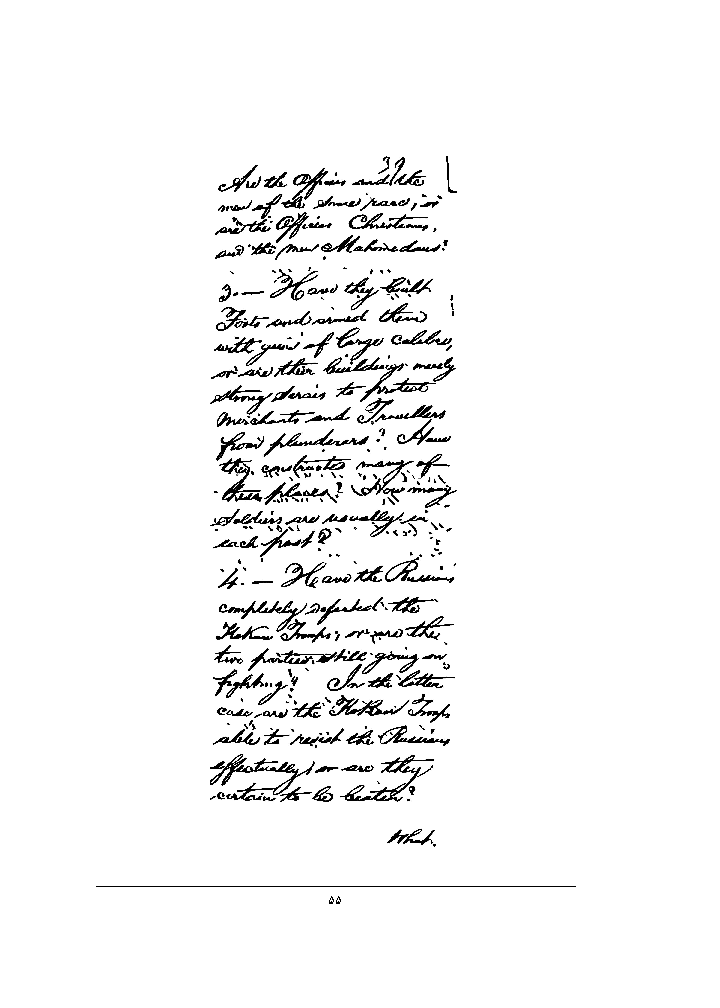 39
Are the Officers and the
men of the same race, or
are the Officers Christians,
and the men Mahomedans?
3. — Have they built
Forts and armed them
with guns of large calebre,
or are their buildings merely
strong Serais to protect
Merchants and Travellers
from plunderers? Have
they constructed many of
these places? How many
Soldiers are usually in
each post?
4. — Have the Russians
completely defeated the
Kokan Troops; or are the
two parties still going on
fighting? In the latter
case are the Kokan Troops
able to resist the Russians
effectually; or are they
certain to be beaten?
What
۵۵